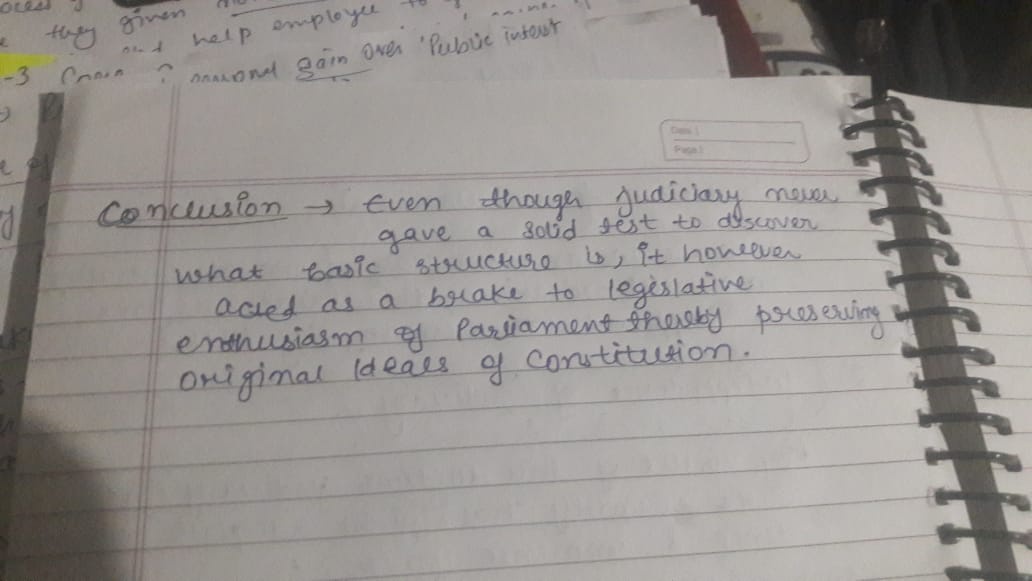 they given
help employee to
-3 gain over 'Public interest
Date :
Page :
Conclusion → Even though judiciary never
gave a solid test to discover
what basic structure is, it however
acted as a brake to legislative
enthusiasm of Parliament thereby preserving
original Ideals of Constitution.